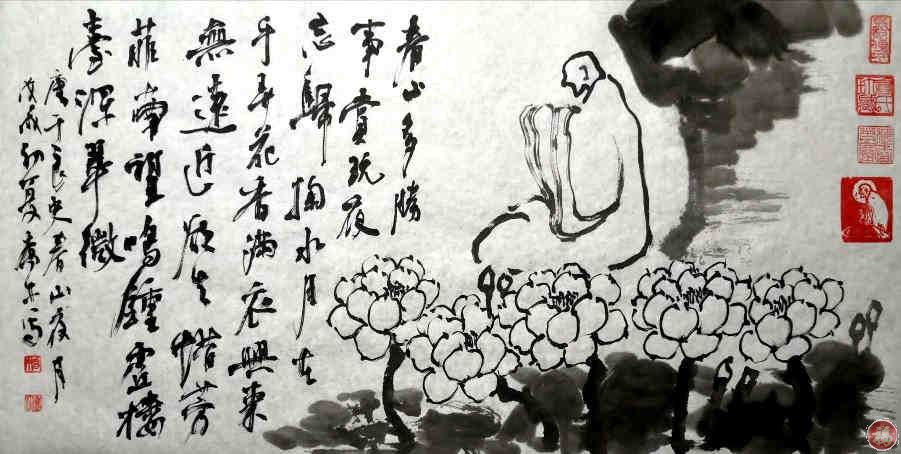 春山多勝
事賞玩夜
忘歸掬水月在
手弄花香滿衣興來
無遠近欲去惜芳
菲南望鳴鐘處樓
臺深翠微
唐于良史春山夜月
戊戌初夏